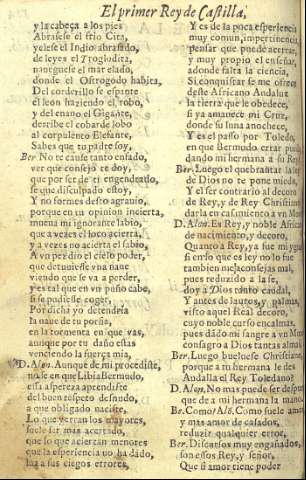 El primer Rey de Castilla,
y la cabeça a los pies
Abrasese el frio Cita,
yelese el Indio abrasado,
de leyes el Trogloditа,
nauegue se el mar elado,
donde el Ostrogodo habita,
Del corderillo se espante
el leon haziendo el robo,
y del enano el Gigante,
derribe el cobarde lobo
al corpulento Elefante,
Sabes que tu padre soy,
Ber. No te cause tanto enfado,
ver que consejo te doy,
que por ser de ti engendrado,
se que disculpado estoy,
Y no formes desto agrauio,
porque en tu opinion incierta,
mueua mi ignorante labio,
que a vezes el loco acierta,
y a vezes no acierta el sabio,
A vn perdio el cielo poder,
que detuuiesse vna naue
viendo que se va a perder,
y es tal que en vn puño cabe,
si se pudiesse coger,
Por dicha yo detendria
la naue de tu porfia,
en la tormenta en que vas,
aunque por tu daño estas
venciendo la fuerça mia,
D. Alon. Aunque de mi procediste,
naciste en que Libia Bermudo,
essa aspereza aprendiste
del buen respeto desnudo,
a que obligado naciste,
Lo que yerran los mayores,
suele ser mas acertado,
que lo que acierran menores
que la esperiencia uo ha dado,
luz a sus ciegos errores,
Y es de la poca esperiencia
muy comun, impertinencia
pensar que puede acertar,
y muy propio el enseñar,
adonde falta la ciencia,
Si conquistar se me ofrece
deste Africano Andaluz
la tierra que le obedece,
si ya amanece mi Cruz,
donde su luna anochece,
Y es el passo por Toledo,
en que Bermudo errar puedo
dando mi hermana a su Rey
Ber. Luego el quebrantar la ley
de Dios no te pone miedo,
Y el ser contrario al decoro
de Rey, y de Rey Christiano
darla en casamiento a vn Moro
D. Alon. Es Rey, y noble Africano
de nacimiento, y decoro,
Quanto a Rey, ya fue mi gusto
si erro que es ley no lo fue
tambien me aconsejas mal,
pues reduzido a la fe,
doy a Dios tanto caudal,
Y antes de lautos, y palma,
visto aquel Real decoro,
cuyo noble curso encalma,
pues dado mi sangre a vn Moro
consagro a Dios tantas almas
Ber. Luego bueluese Christiano
porque a tu hermana le des
Andalla el Rey Toledano?
D. Alon. No mas puede ser despues
que de a mi hermana la mano
Ber. Como? Alō. Como suele amor
y mas amor de casados,
reduzir qualquier error,
Ber. Discursos muy engañados,
son essos Rey, y señor,
Que si amor tiene poder